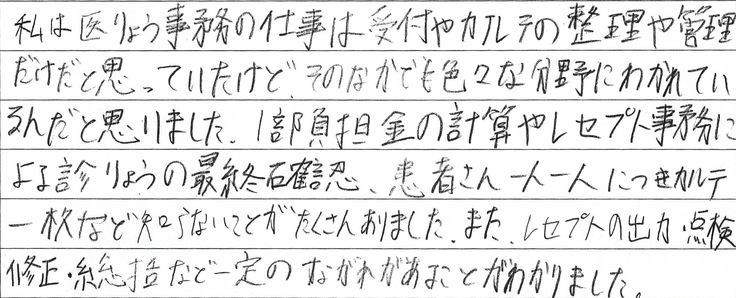 私は医りょう事務の仕事は受付やカルテの整理や管理
だけだと思っていたけど、そのなかでも色々な分野にわかれてい
るんだと思いました。1部負担金の計算やレセプト事務に
よる診りょうの最終確認、患者さん一人一人につきカルテ
一枚など知らないことがたくさんありました。また、レセプトの出力・点検
修正・総括など一定のながれがあることがわかりました。